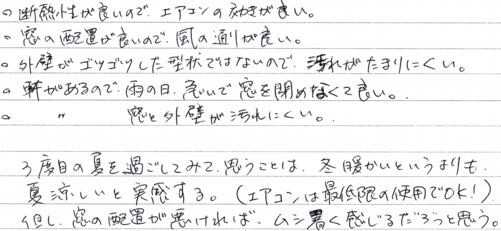 ○ 断熱性が良いので、エアコンの効きが良い。
○ 窓の配置が良いので、風の通りが良い。
○ 外壁がゴツゴツした型状ではないので、汚れがたまりにくい。
○ 軒があるので、雨の日、急いで窓を閉めなくて良い。
○ 〃 窓と外壁が汚れにくい。
3度目の夏を過ごしてみて、思うことは、冬暖かいというよりも、
夏涼しいと実感する。(エアコンは最低限の使用でOK!)
但し、窓の配置が悪ければ、ムシ暑く感じるだろうと思う。